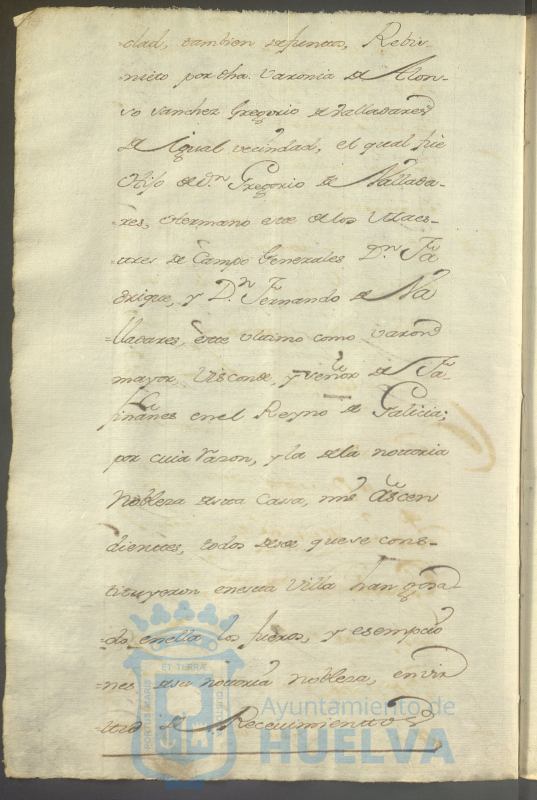 -dad, tambien defuntos, Rebis-
nieto por dha. varonia de Alon-
so Sanchez Gregorio de Valladares
de igual vecindad, el qual fue
Hijo de Dn. Gregorio de Vallada-
res, Hermano este de los Maes-
tres de Campo Generales Dn. Fa
drique, y Dn. Fernando de Va
lladares, este ultimo como varon
mayor, Visconde, y señor de Fa-
fiñanes en el Reyno de Galicia;
por cuia razon, y la de la notoria
Nobleza de esta Casa, mis Ascen
dientes, todos desde que se cons-
tituyeron en esta Villa han goza
do en ella los fueros, y esempcio
nes de su notoria nobleza, en vir
tud de Recevimientto
ET TERRÆ
PORTUS MARIS
CUSTODIA
Ayuntamiento de
HUELVA